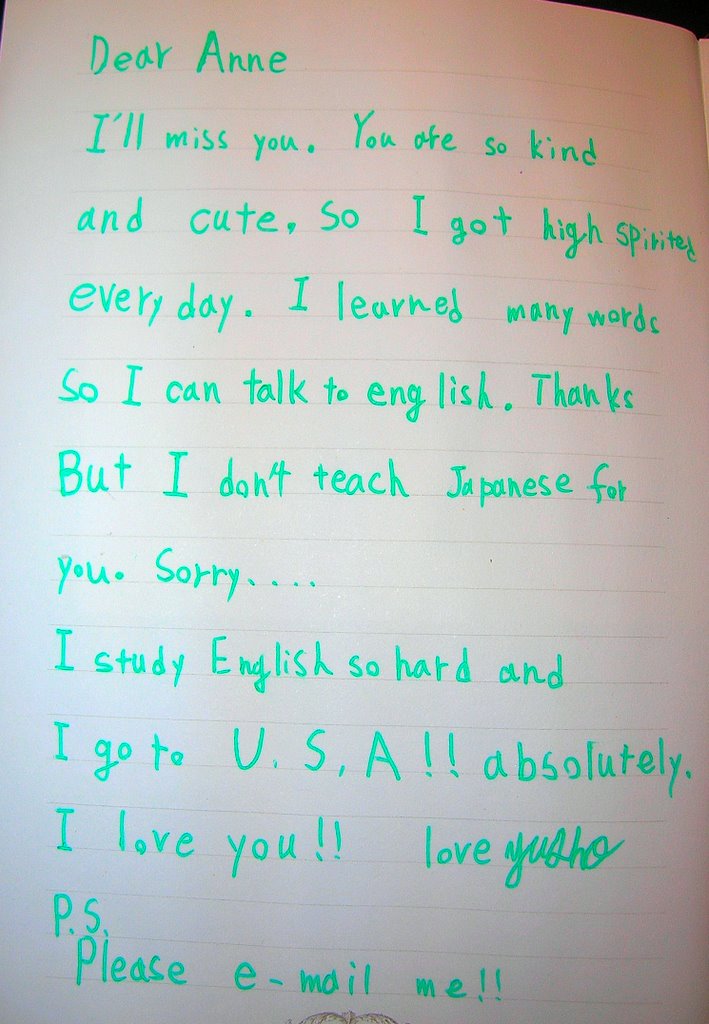 Dear Anne
I'll miss you. You are so kind
and cute, So I got high spirited
every day. I learned many words
So I can talk to english. Thanks
But I don't teach Japanese for
you. Sorry....
I study English so hard and
I go to U.S,A!! absolutely.
I love you!! love yusho
P.S.
Please e-mail me!!